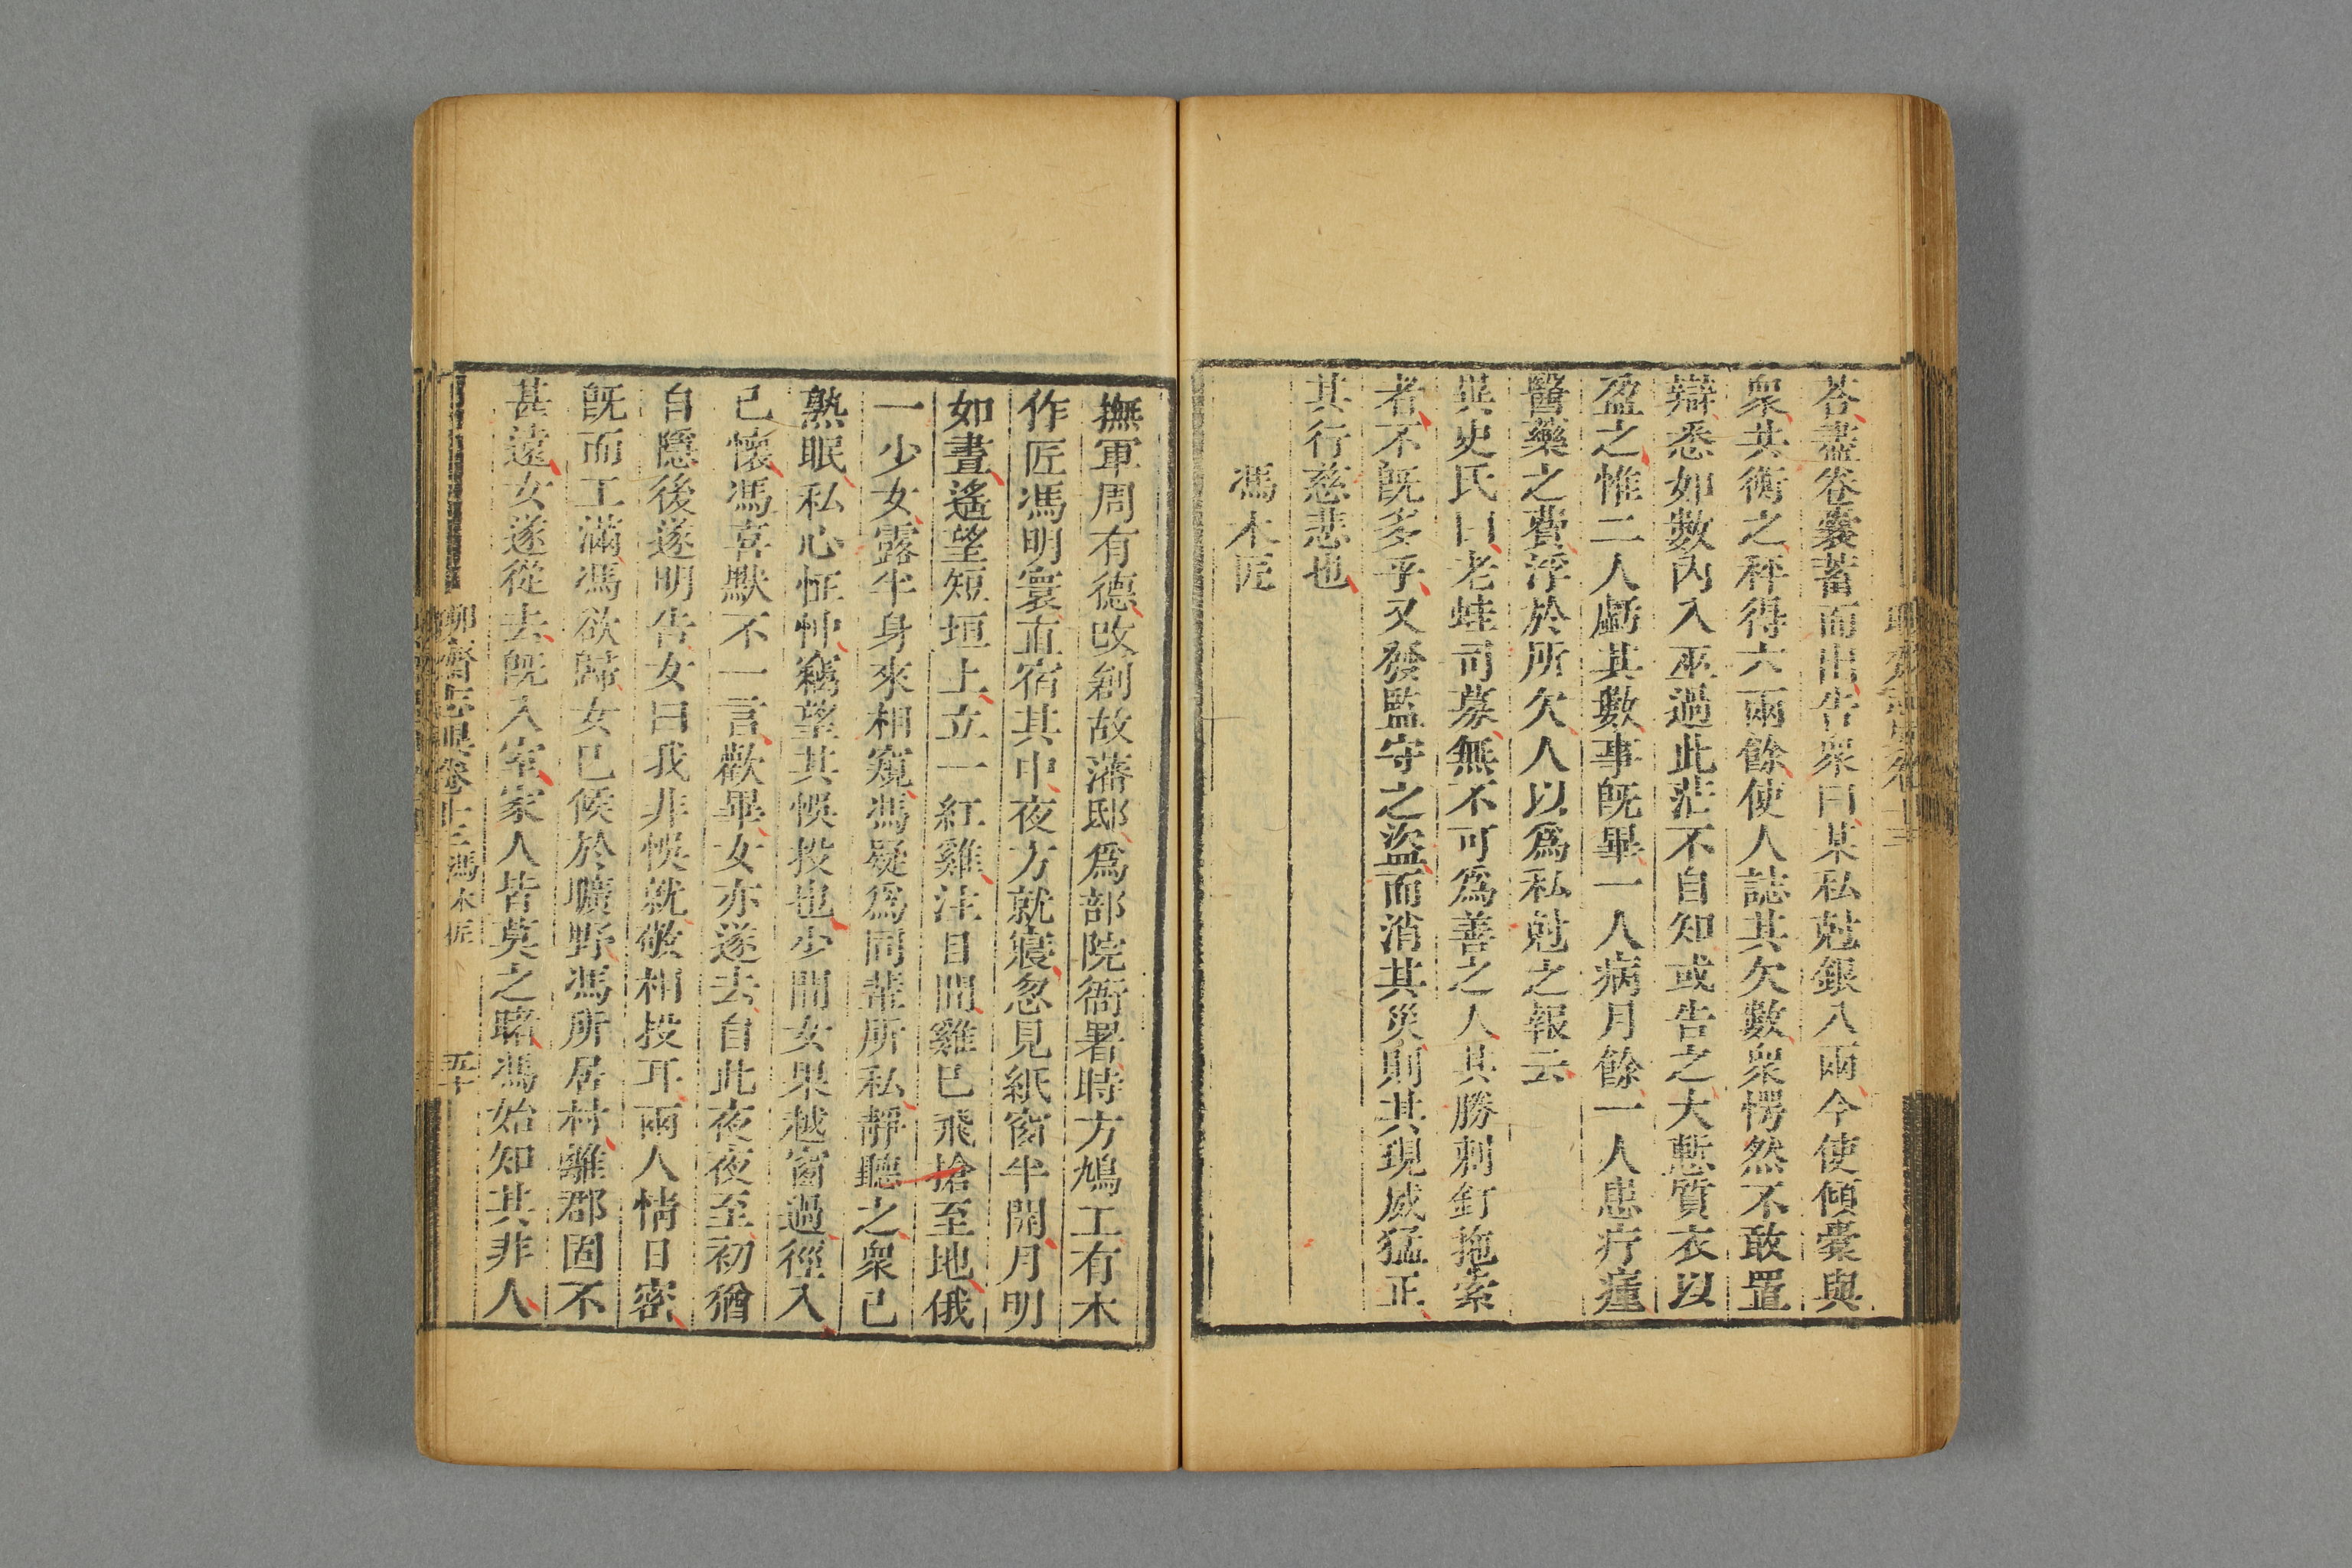 荅盡卷囊蓄而出告衆曰某私尅銀八兩今使傾橐與
衆共衡之秤得六兩餘使人誌其欠數衆愕然不敢置
辯悉如數內入巫過此茫不自知或告之大慙質衣以
盈之惟二人虧其數事旣畢一人病月餘一人患疔瘇
醫藥之費浮於所欠人以爲私尅之報云
異史氏曰老蛙司募無不可爲善之人其勝刺釘拖索
者不旣多乎又發監守之盜而消其災則其現威猛正
其行慈悲也
馮木匠
撫軍周有德改創故藩邸爲部院衙署時方鳩工有木
作匠馮明寰直宿其中夜方就寢忽見紙窗半開月明
如晝遙望短垣上立一紅雞注目間雞已飛搶至地俄
一少女露半身來相窺馮疑爲同輩所私靜聽之衆已
熟眠私心怔忡竊望其悞投也少間女果越窗過徑入
己懷馮喜默不一言歡畢女亦遂去自此夜夜至初猶
自隱後遂明告女曰我非悞就敬相投耳兩人情日密
旣而工滿馮欲歸女已候於曠野馮所居村離郡固不
甚遠女遂從去旣入室家人皆莫之睹馮始知其非人
聊齋志異卷十三馮木匠 五十